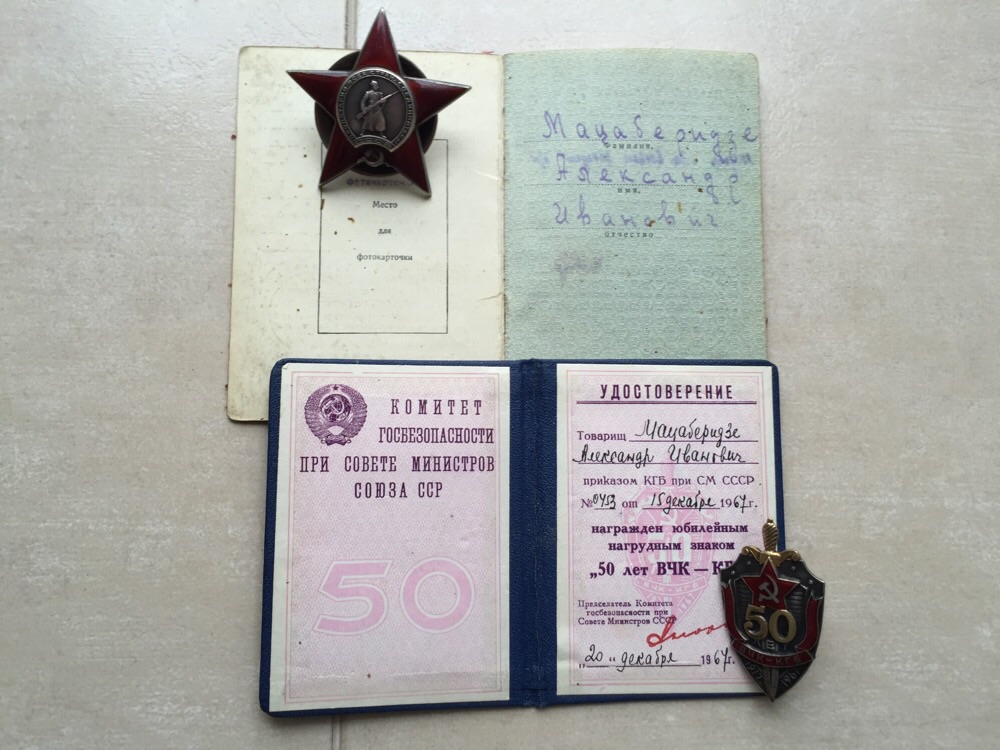 Место
для
фотокарточки
Мацаберидзе
фамилия,
Александр
имя,
Иванович
отчество
КОМИТЕТ
ГОСБЕЗОПАСНОСТИ
ПРИ СОВЕТЕ МИНИСТРОВ
СОЮЗА ССР
50
УДОСТОВЕРЕНИЕ
Товарищ Мацаберидзе
Александр Иванович
приказом КГБ при СМ СССР
№0453 от 15 декабря 1967г.
награжден юбилейным
нагрудным знаком
„50 лет ВЧК — К
Председатель Комитета
госбезопасности при
Совете Министров СССР
„20 " декабря 1967г.
50
ВЧК-КГБ